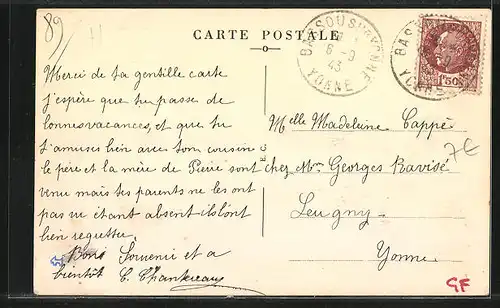 89
H
CARTE POSTALE
BASSOU SUR YONNE
6 - 9
43
YONNE
BAS
YONNE
1F50
Merci de ta gentille carte
j'espère que tu passe de
bonnes vacances, et que tu
t'amuses bien avec ton cousin
le père et la mère de Pierre sont
venu mais tes parents ne les ont
pas vu étant absent ils l'ont
bien regretter.
Bons Souvenir et a
bientôt
Melle Madeleine Cappé
7€
chez Mr Georges Ravisé
Leugny
Yonne
E.C.
GF